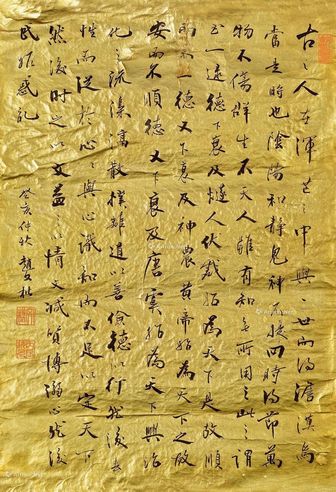 古之人在渾芒之中與一世而得澹漠焉
當是時也陰陽和靜鬼神不擾四時得節萬
物不傷群生不夭人雖有知無所用之此之謂
至一逮德下衰及燧人伏戲始為天下是故順
而不一德又下衰及神農黃帝始為天下是故
安而不順德又下衰及唐虞始為天下興治
化之流澆淳散樸離道以善險德以行然後去
性而從於心心與心識知而不足以定天下
然後附之以文益之以博文滅質博溺心然後
民始惑亂
癸亥仲秋 趙